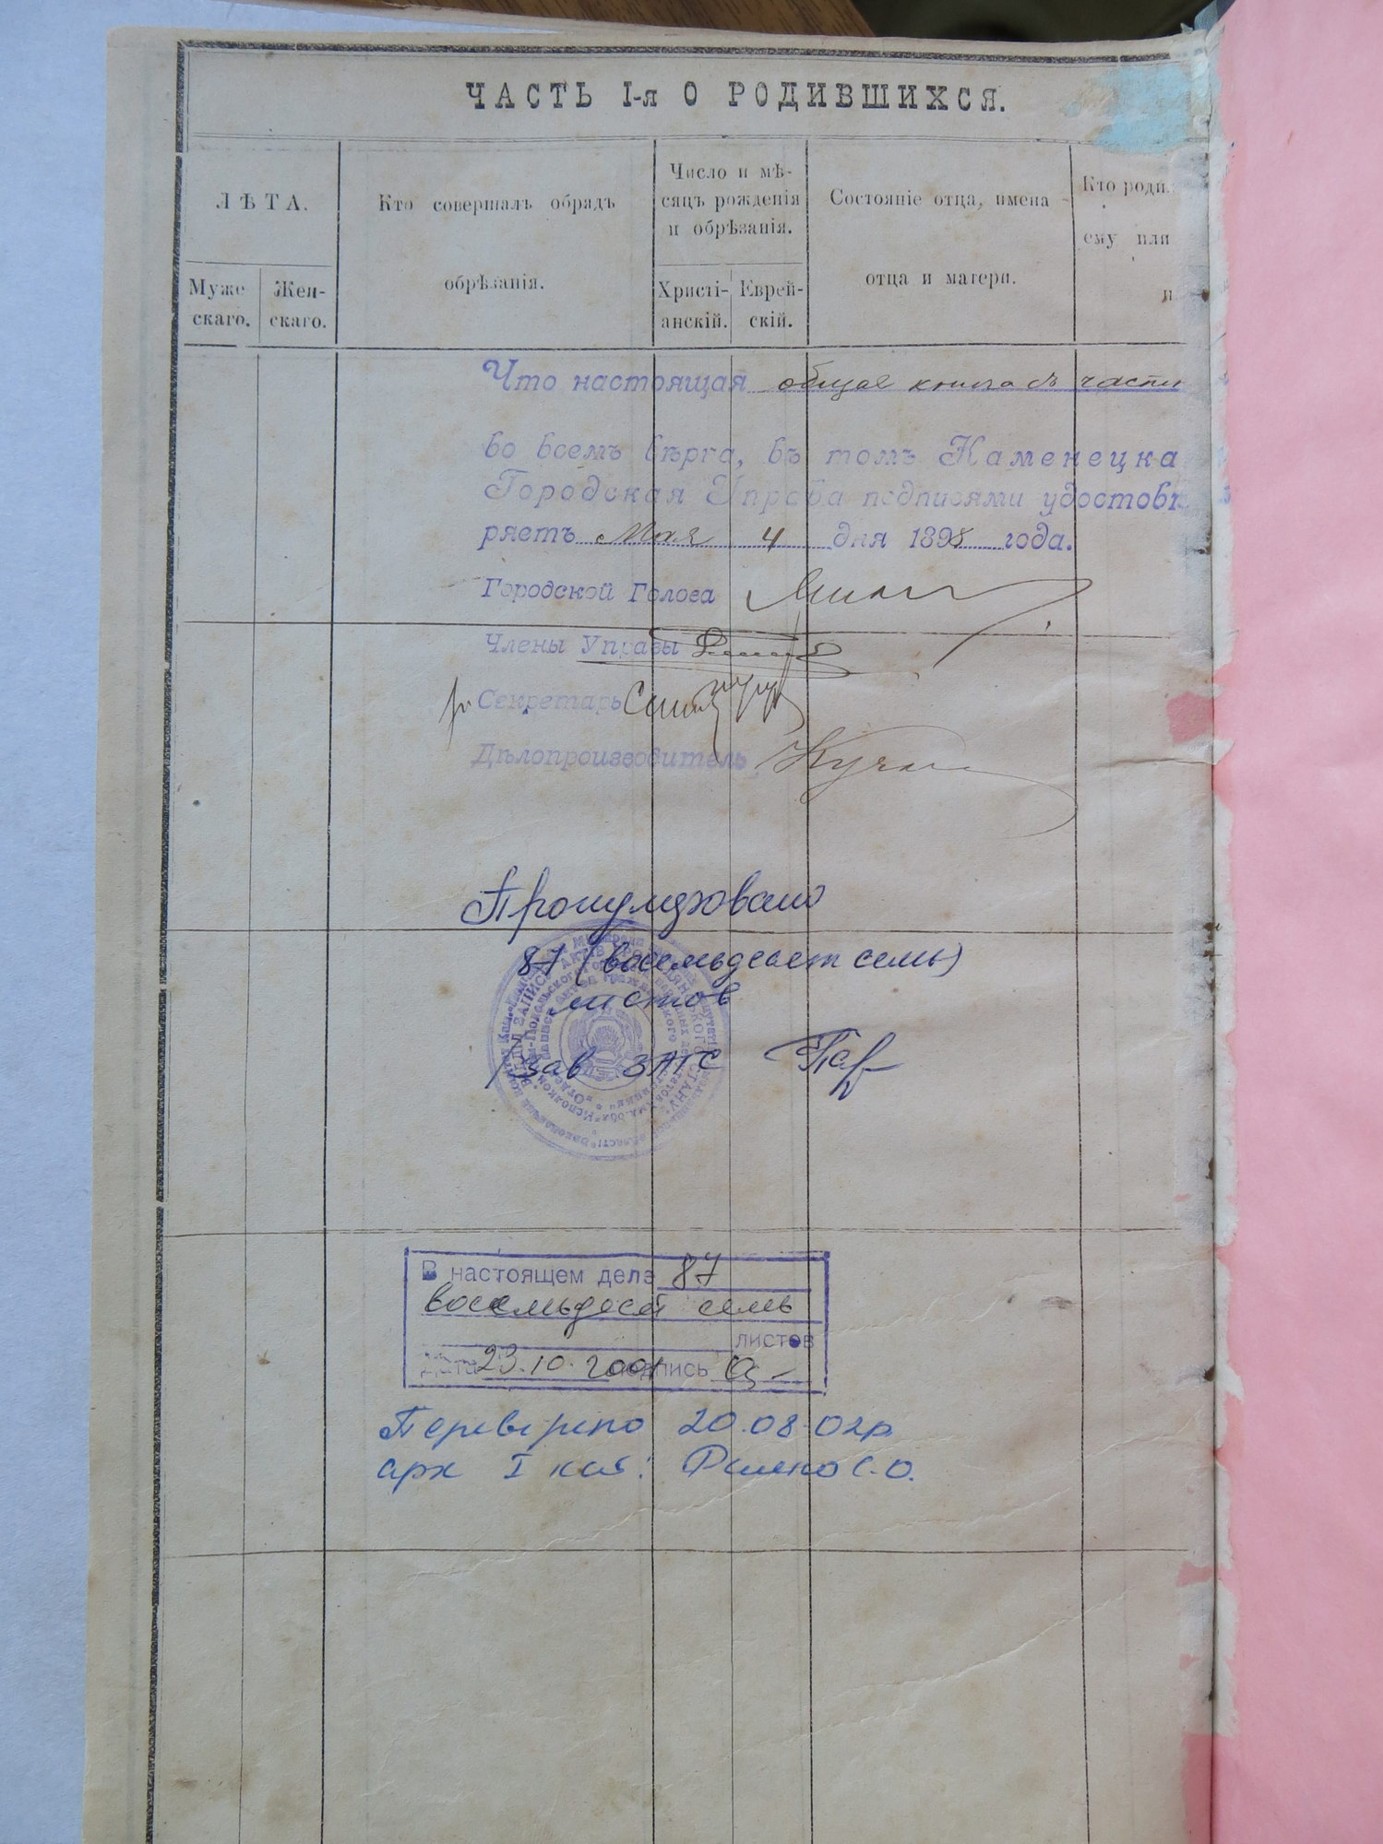 ЧАСТЬ I-я О РОДИВШИХСЯ.
ЛѢТА.
Муже
скаго.
Жен-
скаго.
Кто совершалъ обрядъ
обрѣзанія.
Число и мѣ-
сяцъ рожденія
и обрѣзанія.
Христі-
анскій.
Еврей-
скій.
Состояніе отца, имена
отца и матери.
Кто роди
ему или
и
Что настоящая общая книга съ части
во всемъ вѣрна, въ томъ Каменецка
Городская Управа подписями удостовѣ
ряетъ Мая 4 дня 1898 года.
Городской Голова
Члены Управы
Секретарь
Дѣлопроизводитель
Пронумеровано
87 (восемьдесят семь)
листов
Зав ЗАГС
В настоящем деле 87
восемьдесят семь
листов
Дата 23.10.2001 подпись
Перевірено 20.08.02р.
арх I кат: